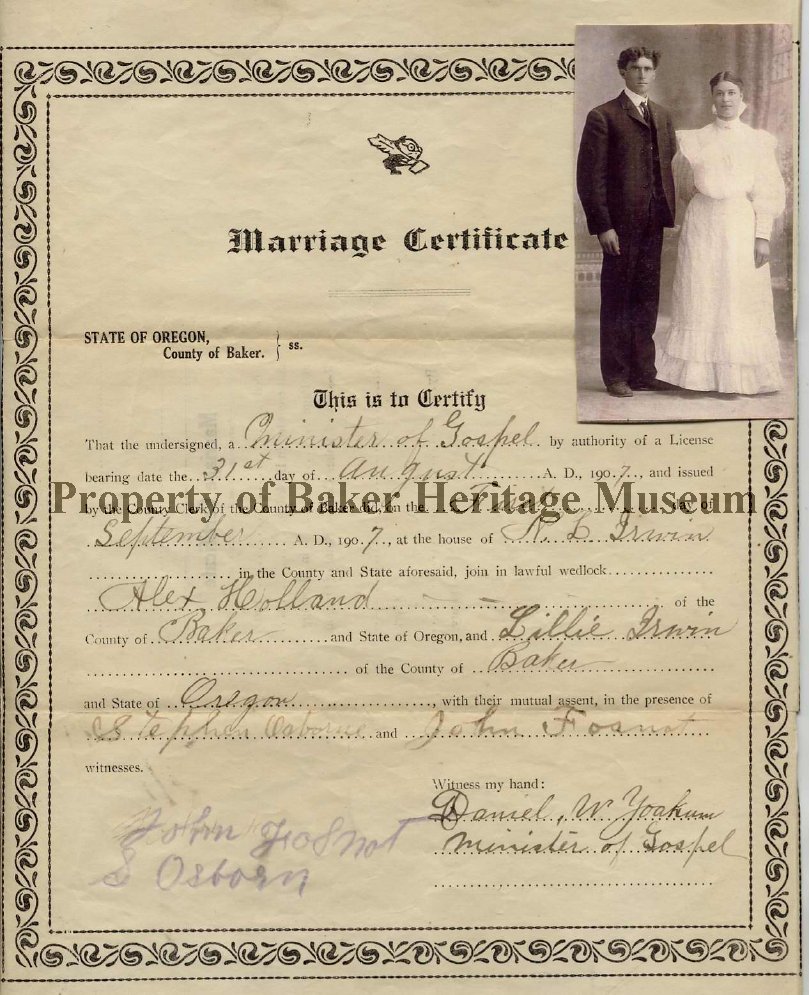 Marriage Certificate
STATE OF OREGON,
County of Baker. } ss.
This is to Certify
That the undersigned, a Minister of Gospel by authority of a License
bearing date the 31st day of August A. D., 1907, and issued
Property of Baker Heritage Museum
by the County Clerk of the County of Baker did, on the day of
September A. D., 1907, at the house of R. L Irwin
in the County and State aforesaid, join in lawful wedlock
Alex Holland of the
County of Baker and State of Oregon, and Lillie Irwin
of the County of Baker
and State of Oregon, with their mutual assent, in the presence of
Stephen Osborne and John Fosnot
witnesses.
Witness my hand:
Daniel, W. Yoakum
Minister of Gospel
John Fosnot
S Osborn